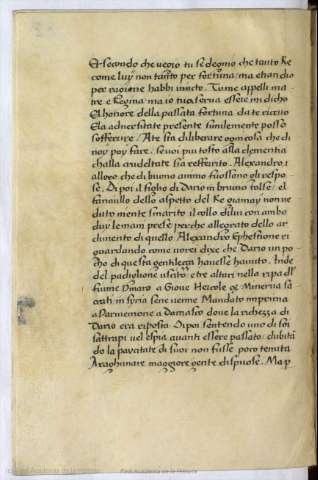 Et secondo che vegio tu se degno che tanto Re
come luy non tanto per fortuna: ma etiandio
per ragione habbi uincto. Tu me appelli ma
tre e Regina: ma io tua serua essere mi dicho
El honore della passata fortuna da te riceuo
E la aduersitate presente humilemente posso
sofferire. A te sta diliberare ogni cosa che di
noy poy fare. se uoi piu tosto alla clementia
ch alla crudeltate sia referrito. Alexandro i
alloro che di buono animo fuosseno gli respo
se. Di poi il figlio di Dario in bruno tolse: el
fanciullo dello aspetto del Re giamay non ue
duto niente smarrito il collo di lui con ambo
duy le mani prese perche allegrato dello ar
dimento di quello Alexandro Ephestione ri
guardando come uorei dixe che Dario un po
cho di questa gentileza hauesse hauuto. Inde
del padiglione uscito: e tre altari nella ripa del
fiume Pinaro a Gioue Hercole & Minerua sa
crati in syria sene uenne. Mandato imprima
a Parmenione a Damasco doue la richeza di
Dario era riposta. Di poi sentendo uno di soi
sattrapi uel spia auanti essere passato: dubitan
do la pauitate di suoi non fusse poco temuta
A raghunare maggiore gente dispuose. Ma p
Real Academia de la Historia